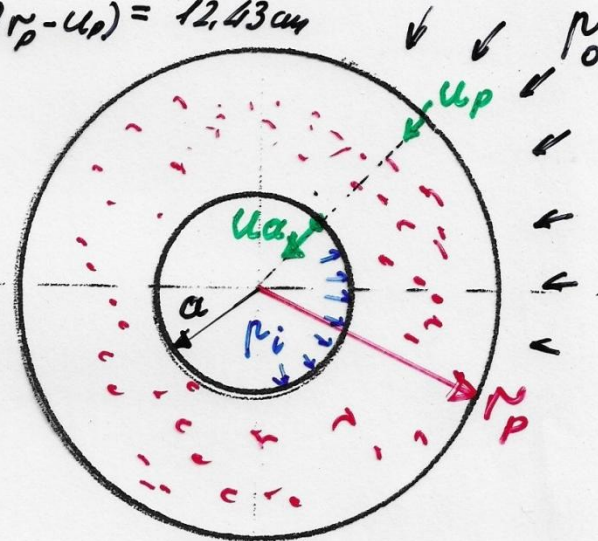 r_p-u_p) = 12,43 cm
p_o
u_p
u_a
a
p_i
r_p